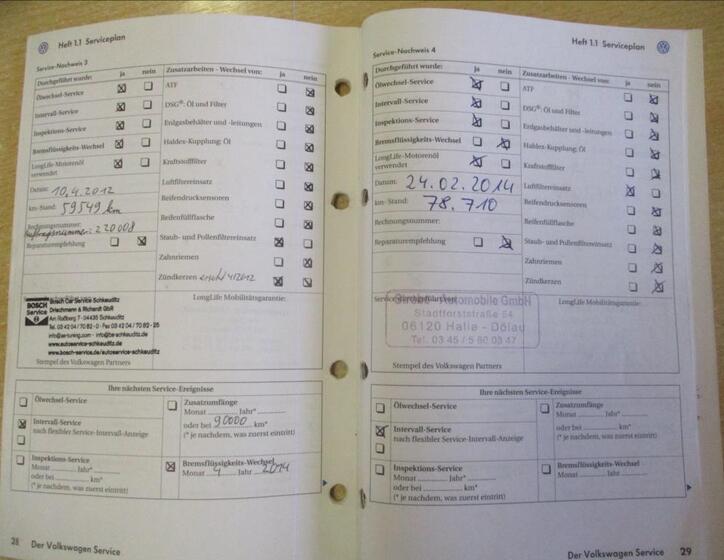 Heft 1.1 Serviceplan
Service-Nachweis 3
Durchgeführt wurde: ja nein
Ölwechsel-Service
Intervall-Service
Inspektions-Service
Bremsflüssigkeits-Wechsel
LongLife-Motorenöl
verwendet
Datum: 10.4.2012
km-Stand: 59549 km
Rechnungsnummer:
Auftragsnummer: 220008
Reparaturempfehlung
Zusatzarbeiten - Wechsel von: ja nein
ATF
DSG®: Öl und Filter
Erdgasbehälter und -leitungen
Haldex-Kupplung: Öl
Kraftstofffilter
Luftfiltereinsatz
Reifendrucksensoren
Reifenfüllflasche
Staub- und Pollenfiltereinsatz
Zahnriemen
Zündkerzen 4/2012
BOSCH
Service
Bosch Car Service Schkeuditz
Driechmann & Richardt GbR
Am Roßberg 7 · 04435 Schkeuditz
www.autoservice-schkeuditz.de
www.bosch-service.de/autoservice-schkeuditz
LongLife Mobilitätsgarantie:
Stempel des Volkswagen Partners
Ihre nächsten Service-Ereignisse
Ölwechsel-Service
Intervall-Service
nach flexibler Service-Intervall-Anzeige
Inspektions-Service
Monat Jahr*
oder bei km*
(* je nachdem, was zuerst eintritt)
Zusatzumfänge
Monat Jahr*
oder bei 90000 km*
(* je nachdem, was zuerst eintritt)
Bremsflüssigkeits-Wechsel
Monat 4 Jahr 2014
28 Der Volkswagen Service
Heft 1.1 Serviceplan
Service-Nachweis 4
Durchgeführt wurde: ja nein
Ölwechsel-Service
Intervall-Service
Inspektions-Service
Bremsflüssigkeits-Wechsel
LongLife-Motorenöl
verwendet
Datum: 24.02.2014
km-Stand: 78.710
Rechnungsnummer:
Reparaturempfehlung
Zusatzarbeiten - Wechsel von: ja nein
ATF
DSG®: Öl und Filter
Erdgasbehälter und -leitungen
Haldex-Kupplung: Öl
Kraftstofffilter
Luftfiltereinsatz
Reifendrucksensoren
Reifenfüllflasche
Staub- und Pollenfiltereinsatz
Zahnriemen
Zündkerzen
Automobile GmbH
Stadtforststraße 54
06120 Halle - Dölau
Tel. 03 45 / 5 50 03 47
LongLife Mobilitätsgarantie:
Stempel des Volkswagen Partners
Ihre nächsten Service-Ereignisse
Ölwechsel-Service
Intervall-Service
nach flexibler Service-Intervall-Anzeige
Inspektions-Service
Monat Jahr*
oder bei km*
(* je nachdem, was zuerst eintritt)
Zusatzumfänge
Monat Jahr*
oder bei km*
(* je nachdem, was zuerst eintritt)
Bremsflüssigkeits-Wechsel
Monat Jahr
Der Volkswagen Service 29